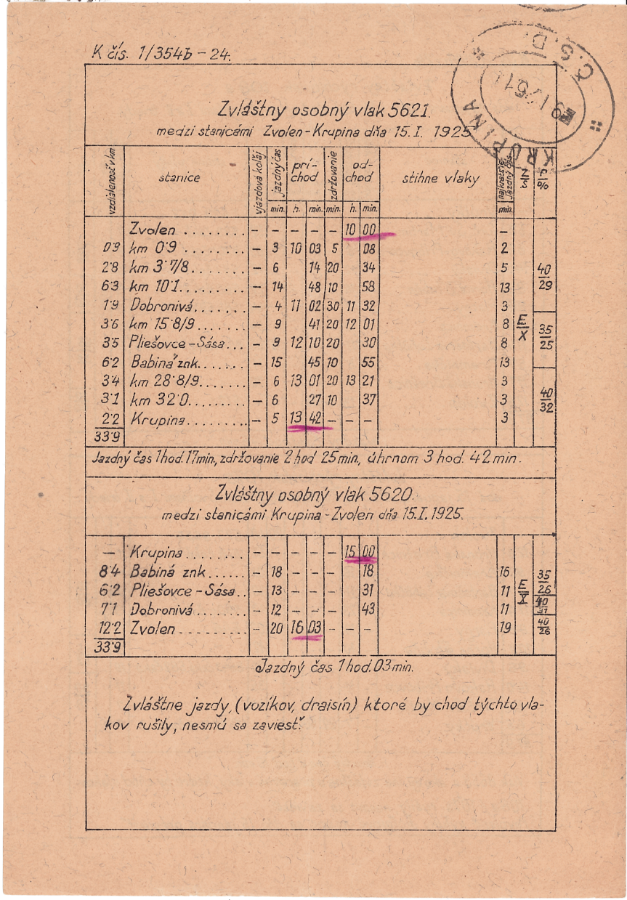 K čís. 1/354b – 24.
KRUPINA Č.S.D.
Zvláštny osobný vlak 5621.
medzi stanicámi Zvolen-Krupina dňa 15.I. 1925
vzdialenosť v km stanice vjazdová koľaj jazdný čas prí-chod zdržovanie od-chod stihne vlaky
min. h. min. min. h. min. min.
Zvolen ........ – – – – – 10 00 –
0·9 km 0·9 ........ – 3 10 03 5 08 2
2·8 km 3·7/8 ..... – 6 14 20 34 5 40/29
6·3 km 10·1 ....... – 14 48 10 58 13
1·9 Dobronivá ...... – 4 11 02 30 11 32 3
3·6 km 15·8/9 ..... – 9 41 20 12 01 8 E/X 35/25
3·5 Pliešovce-Sása... – 9 12 10 20 30 8
6·2 Babiná znk. ..... – 15 45 10 55 13
3·4 km 28·8/9 ..... – 6 13 01 20 13 21 3
3·1 km 32·0 ....... – 6 27 10 37 3 40/32
2·2 Krupina ........ – 5 13 42 – – – 3
33·9
Jazdný čas 1 hod. 17 min, zdržovanie 2 hod 25 min, úhrnom 3 hod. 42 min.
Zvláštny osobný vlak 5620.
medzi stanicámi Krupina - Zvolen dňa 15.I. 1925.
– Krupina ........ – – – – – 15 00
8·4 Babiná znk ...... – 18 – – – 18 16 35/26
6·2 Pliešovce-Sása.. – 13 – – – 31 11 E/X
7·1 Dobronivá ...... – 12 – – – 43 11
12·2 Zvolen .......... – 20 16 03 – – – 19 40/26
33·9
Jazdný čas 1 hod. 03 min.
Zvláštne jazdy, (vozíkov, draisín) ktoré by chod týchto vla-
kov rušily, nesmú sa zaviesť.